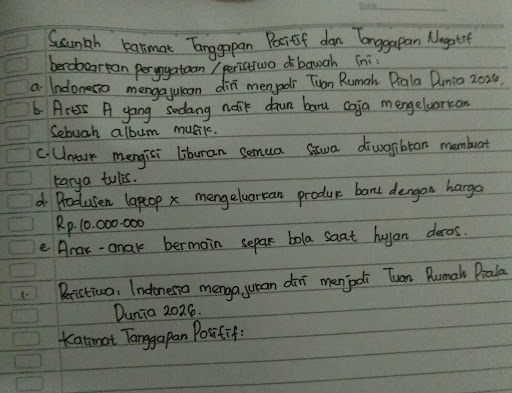 Susunlah kalimat Tanggapan Positif dan Tanggapan Negatif
berdasarkan pernyataan / peristiwa dibawah ini:
a. Indonesia mengajukan diri menjadi Tuan Rumah Piala Dunia 2026.
b. Artis A yang sedang naik daun baru saja mengeluarkan
sebuah album musik.
c. Untuk mengisi liburan semua siswa diwajibkan membuat
karya tulis.
d. Produsen laptop x mengeluarkan produk baru dengan harga
Rp.10.000.000
e. Anak-anak bermain sepak bola saat hujan deras.
1. Peristiwa, Indonesia mengajukan diri menjadi Tuan Rumah Piala
Dunia 2026.
Kalimat Tanggapan Positif: